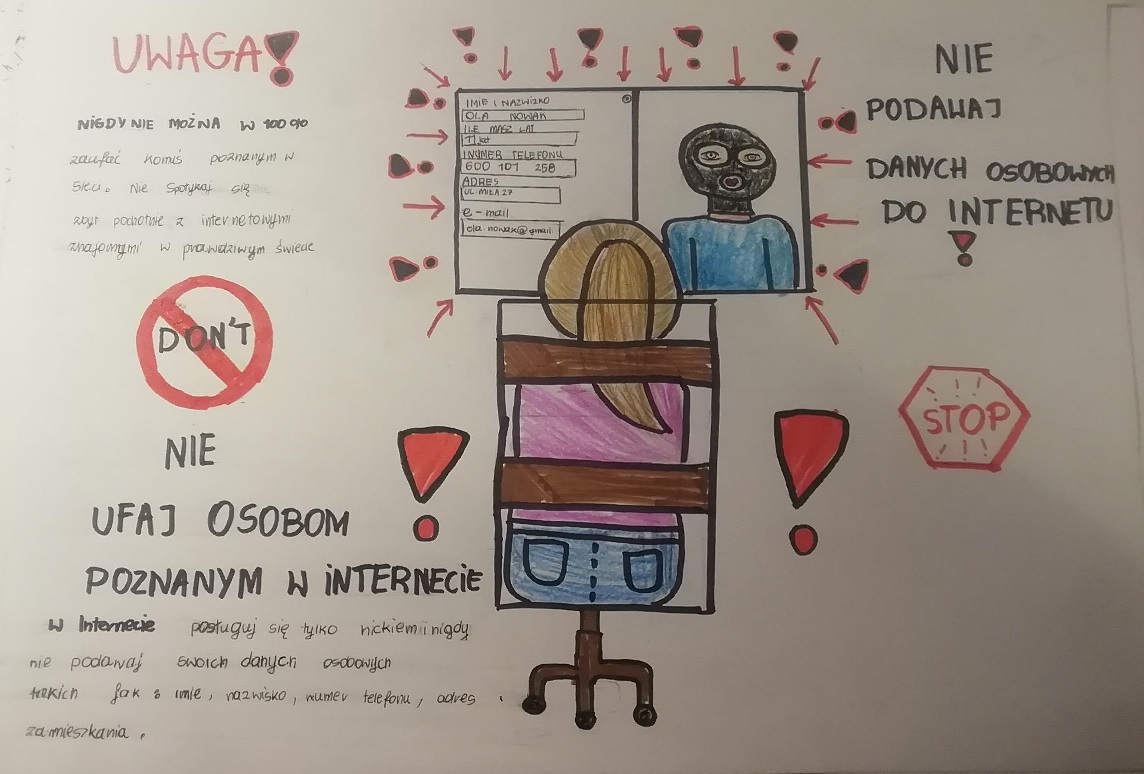 UWAGA!
NIGDY NIE MOŻNA W 100%
zaufać komuś poznanym w
sieci. Nie spotykaj się
zbyt pochotnie z internetowymi
znajomymi w prawdziwym świecie
DON'T
NIE
UFAJ OSOBOM
POZNANYM W INTERNECIE
W Internecie posługuj się tylko nickiem i nigdy
nie podawaj swoich danych osobowych
takich jak: imie, nazwisko, numer telefonu, adres
zamieszkania.
IMIE I NAZWIZKO
OLA NOWAK
ILE MASZ LAT
11 lat
NUMER TELEFONU
600 101 258
ADRES
UL. MIŁA 27
e-mail
ola.nowak@gmail.
NIE
PODAWAJ
DANYCH OSOBOWYCH
DO INTERNETU
!
STOP